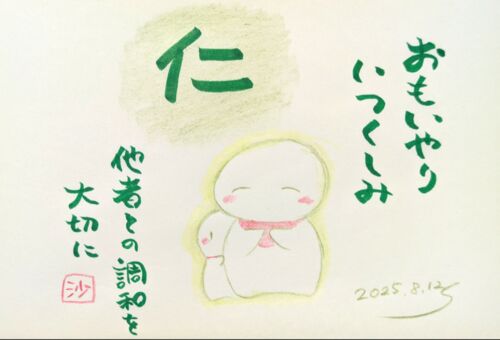 仁
おもいやり
いつくしみ
他者との調和を
大切に
沙
2025.8.12